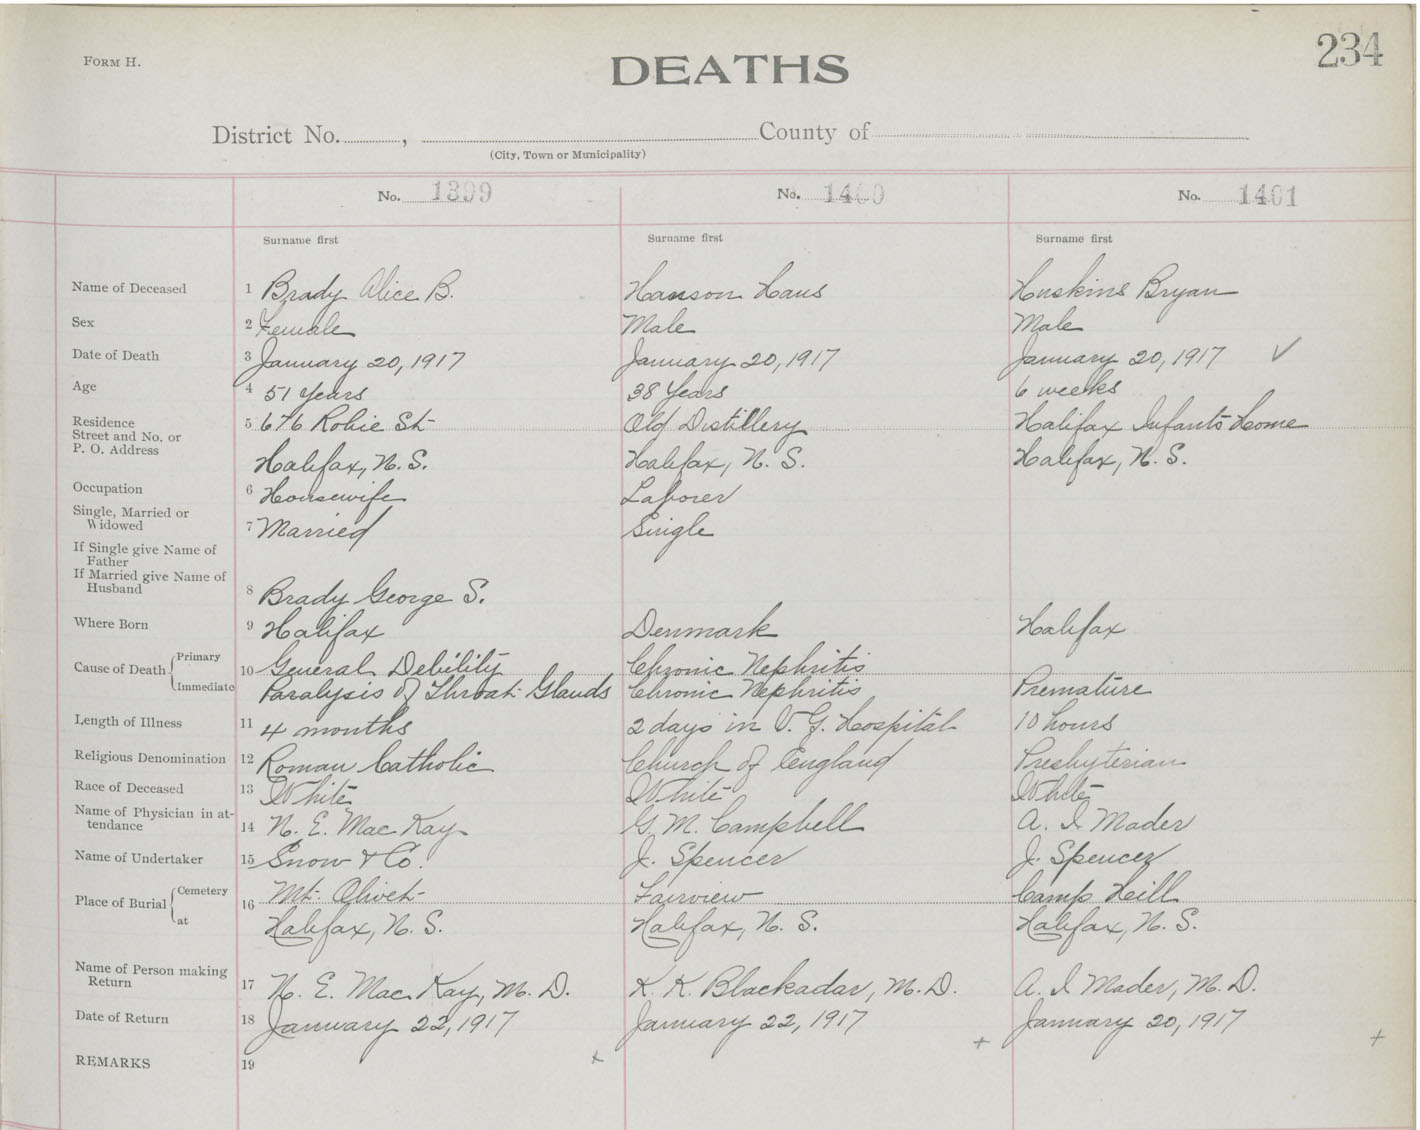 FORM H.
DEATHS
234
District No. , County of
(City, Town or Municipality)
No. 1399 No. 1400 No. 1401
Surname first Surname first Surname first
Name of Deceased 1 Brady Alice B. Hanson Hans Huskins Bryan
Sex 2 Female Male Male
Date of Death 3 January 20, 1917 January 20, 1917 January 20, 1917 ✓
Age 4 51 Years 38 Years 6 weeks
Residence
Street and No. or
P. O. Address
5 676 Robie St Old Distillery Halifax Infants Home
Halifax, N. S. Halifax, N. S. Halifax, N. S.
Occupation 6 Housewife Laborer
Single, Married or
Widowed
7 Married Single
If Single give Name of
Father
If Married give Name of
Husband
8 Brady George S.
Where Born 9 Halifax Denmark Halifax
Cause of Death Primary 10 General Debility Chronic Nephritis
Immediate Paralysis of Throat Glands Chronic Nephritis Premature
Length of Illness 11 4 months 2 days in V. G. Hospital 10 hours
Religious Denomination 12 Roman Catholic Church of England Presbyterian
Race of Deceased 13 White White White
Name of Physician in at-
tendance
14 N. E. MacKay G. M. Campbell A. I Mader
Name of Undertaker 15 Snow & Co. J. Spencer J. Spencer
Place of Burial Cemetery 16 Mt. Olivet Fairview Camp Hill
at Halifax, N. S. Halifax, N. S. Halifax, N. S.
Name of Person making
Return
17 N. E. MacKay, M. D. K. K. Blackadar, M. D. A. I Mader, M. D.
Date of Return 18 January 22, 1917 January 22, 1917 January 20, 1917
REMARKS 19 + + +